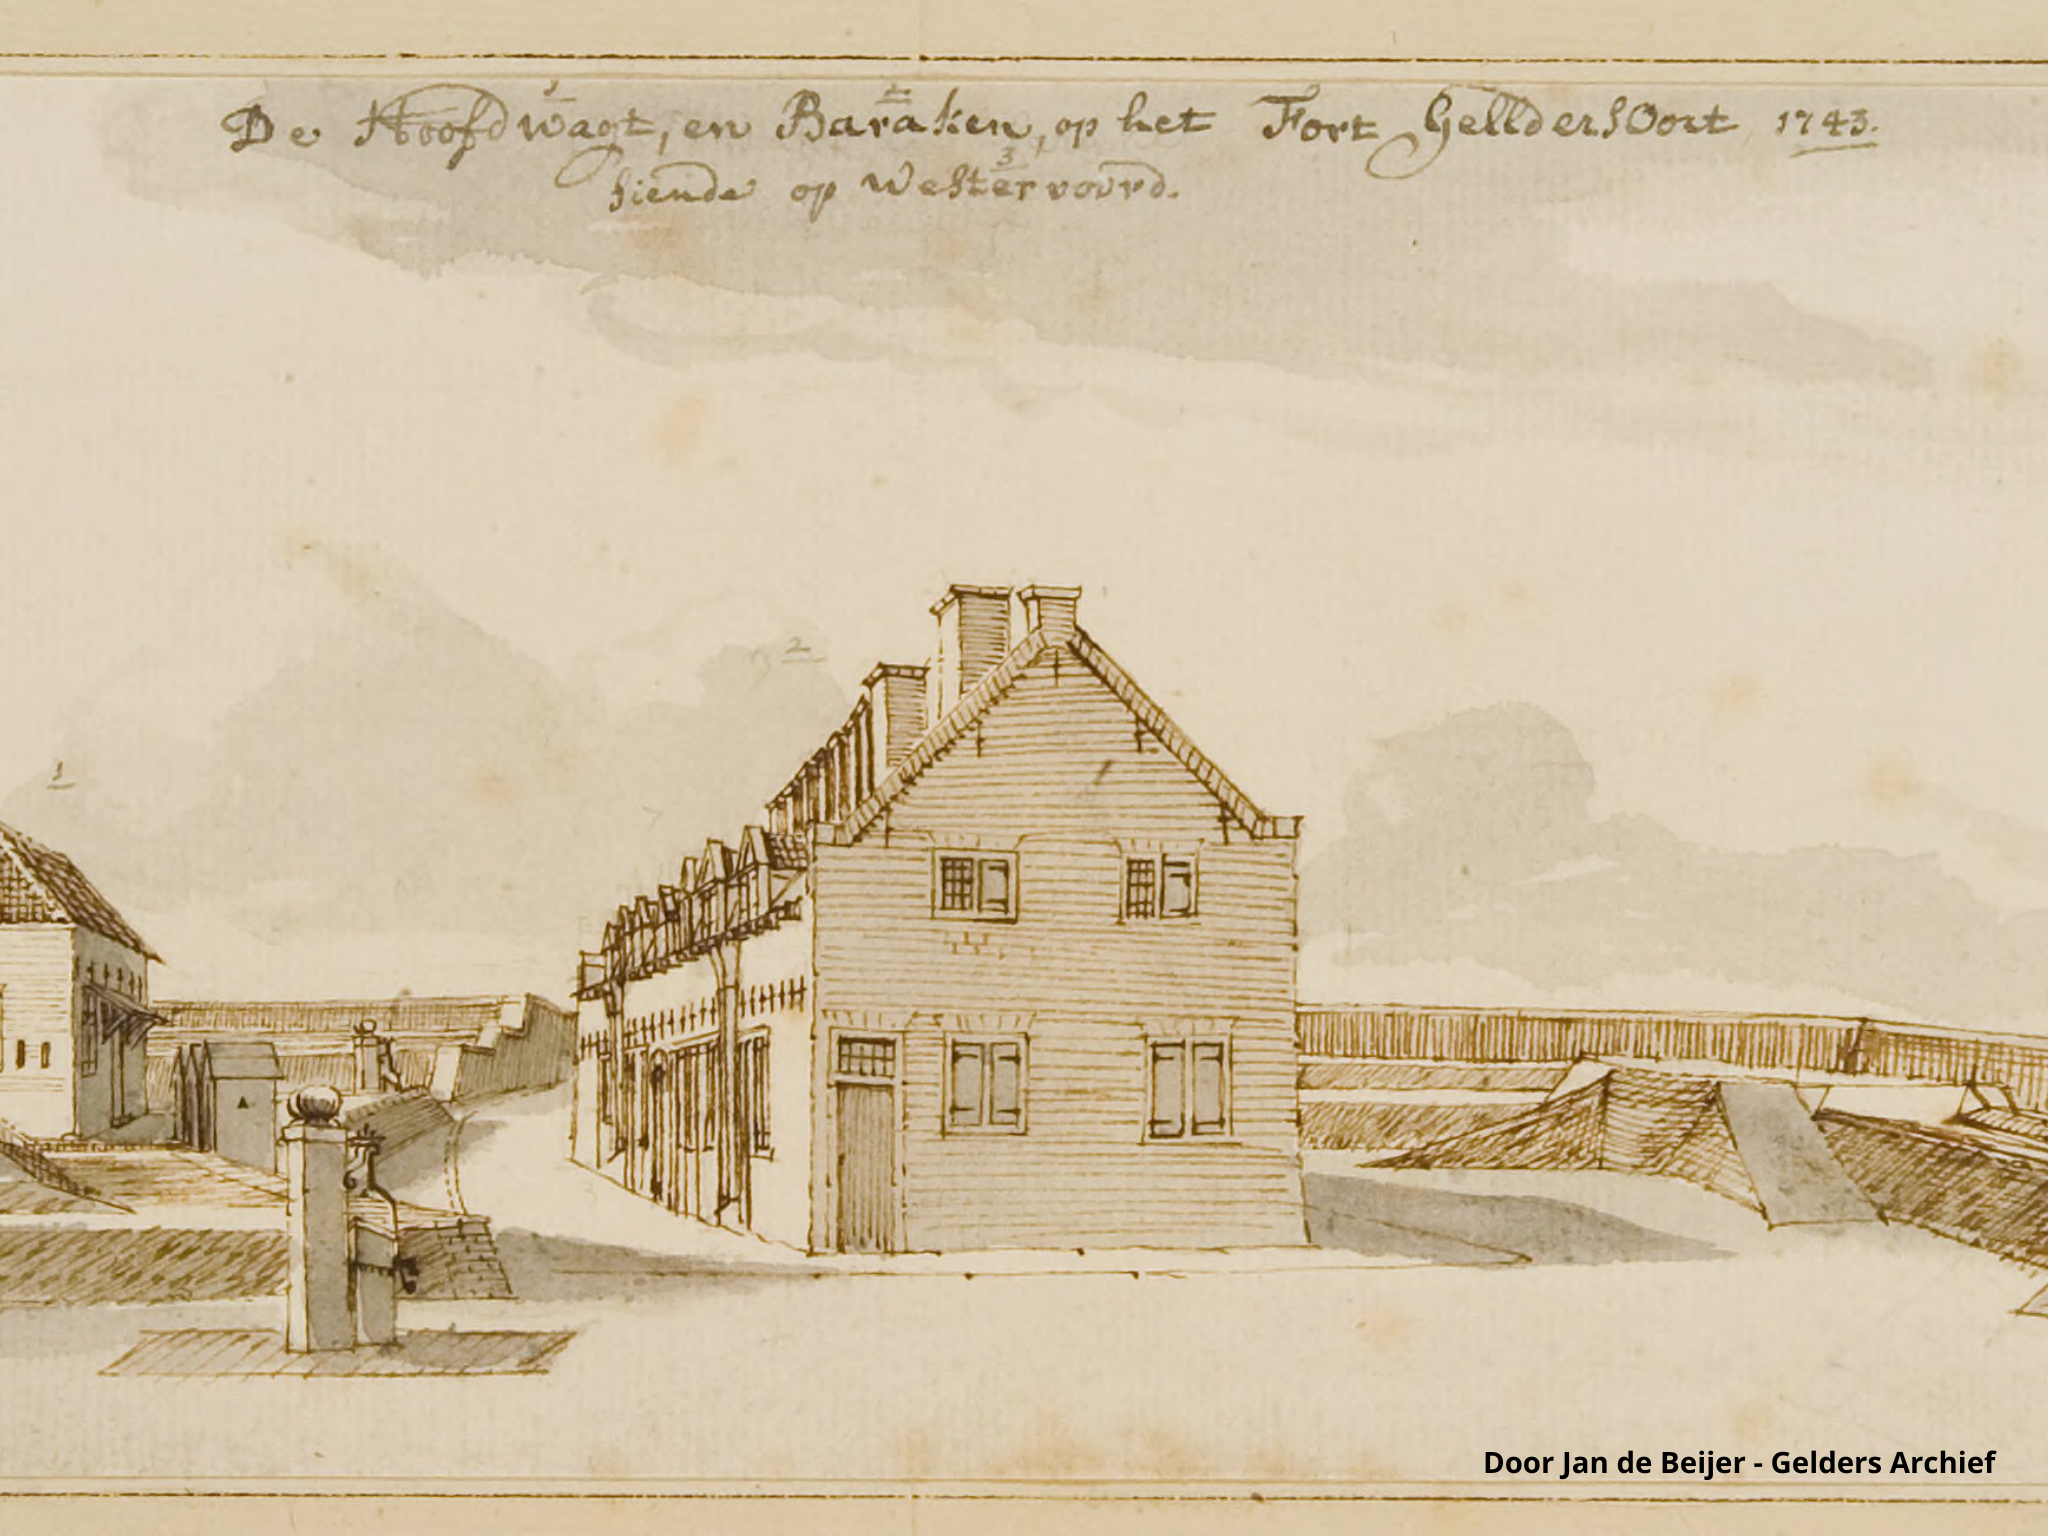 De Hoofdwagt, en Baraken, op het Fort GelldersOort 1743.
siende op Westervoord.
1
2
3
2
1
Door Jan de Beijer - Gelders Archief